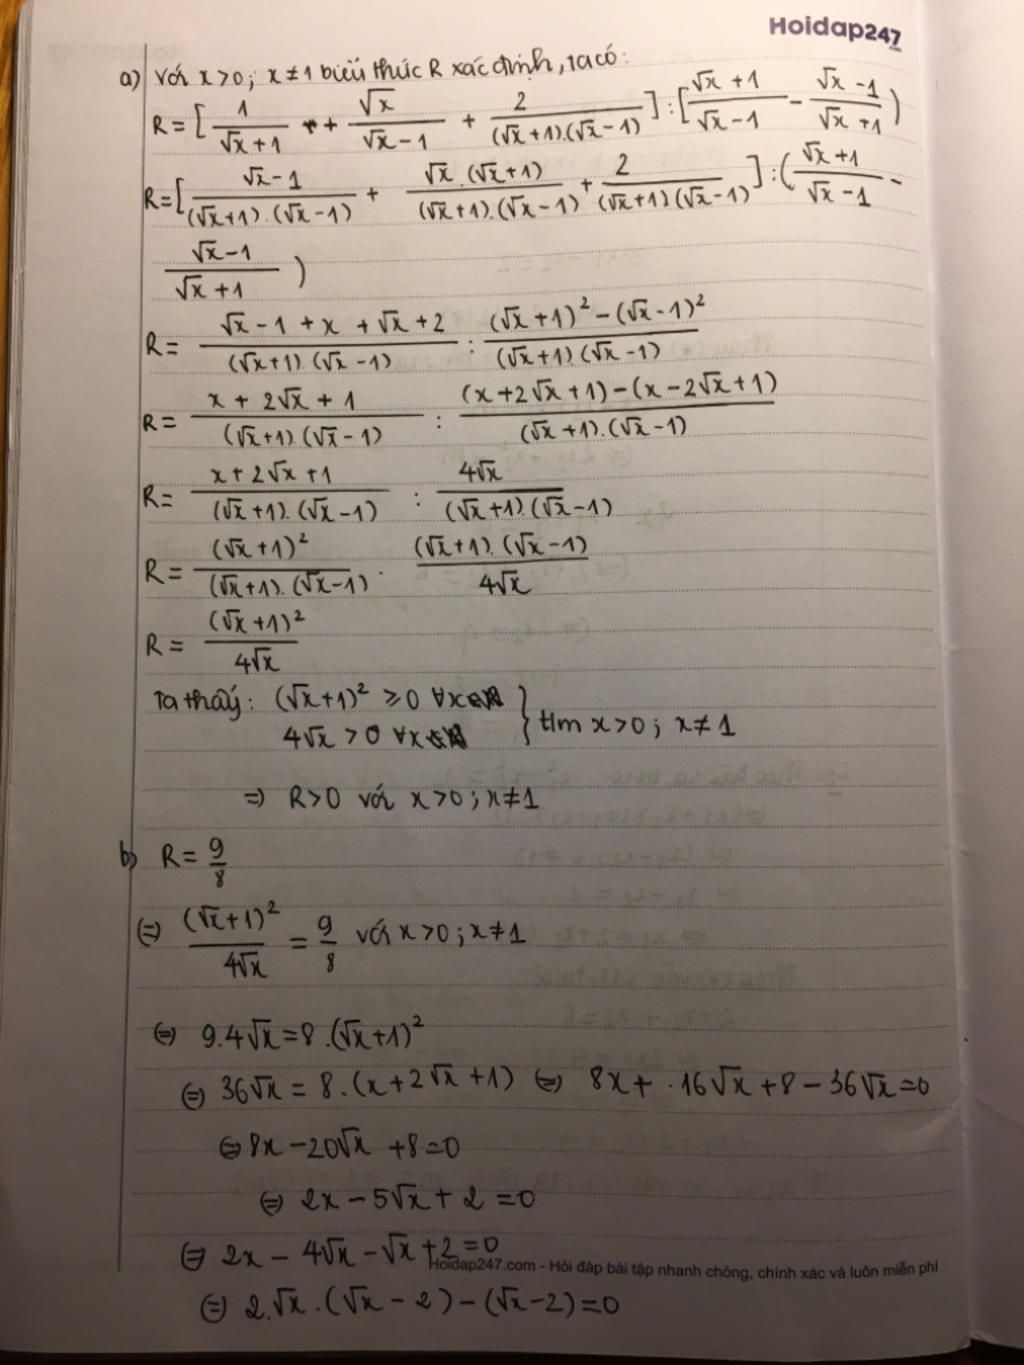 Hoidap247
a) Với x > 0; x ≠ 1 biểu thức R xác định, ta có:
R = [ 1/(√x + 1) + + √x/(√x - 1) + 2/((√x + 1).(√x - 1)) ] : [ (√x + 1)/(√x - 1) - (√x - 1)/(√x + 1) )
R = [ (√x - 1)/((√x + 1).(√x - 1)) + √x.(√x + 1)/((√x + 1).(√x - 1)) + 2/((√x + 1)(√x - 1)) ] : ( (√x + 1)/(√x - 1) -
(√x - 1)/(√x + 1) )
R = (√x - 1 + x + √x + 2)/((√x + 1).(√x - 1)) : ((√x + 1)² - (√x - 1)²)/((√x + 1)(√x - 1))
R = (x + 2√x + 1)/((√x + 1).(√x - 1)) : ((x + 2√x + 1) - (x - 2√x + 1))/((√x + 1).(√x - 1))
R = (x + 2√x + 1)/((√x + 1).(√x - 1)) : 4√x/((√x + 1).(√x - 1))
R = (√x + 1)²/((√x + 1).(√x - 1)) . ((√x + 1).(√x - 1))/4√x
R = (√x + 1)²/4√x
Ta thấy: (√x + 1)² ≥ 0 ∀x
4√x > 0 ∀x } tm x > 0; x ≠ 1
⇒ R > 0 với x > 0; x ≠ 1
b) R = 9/8
⇔ (√x + 1)²/4√x = 9/8 với x > 0; x ≠ 1
⇔ 9.4√x = 8.(√x + 1)²
⇔ 36√x = 8.(x + 2√x + 1) ⇔ 8x + .16√x + 8 - 36√x = 0
⇔ 8x - 20√x + 8 = 0
⇔ 2x - 5√x + 2 = 0
⇔ 2x - 4√x - √x + 2 = 0
Hoidap247.com - Hỏi đáp bài tập nhanh chóng, chính xác và luôn miễn phí
⇔ 2.√x.(√x - 2) - (√x - 2) = 0